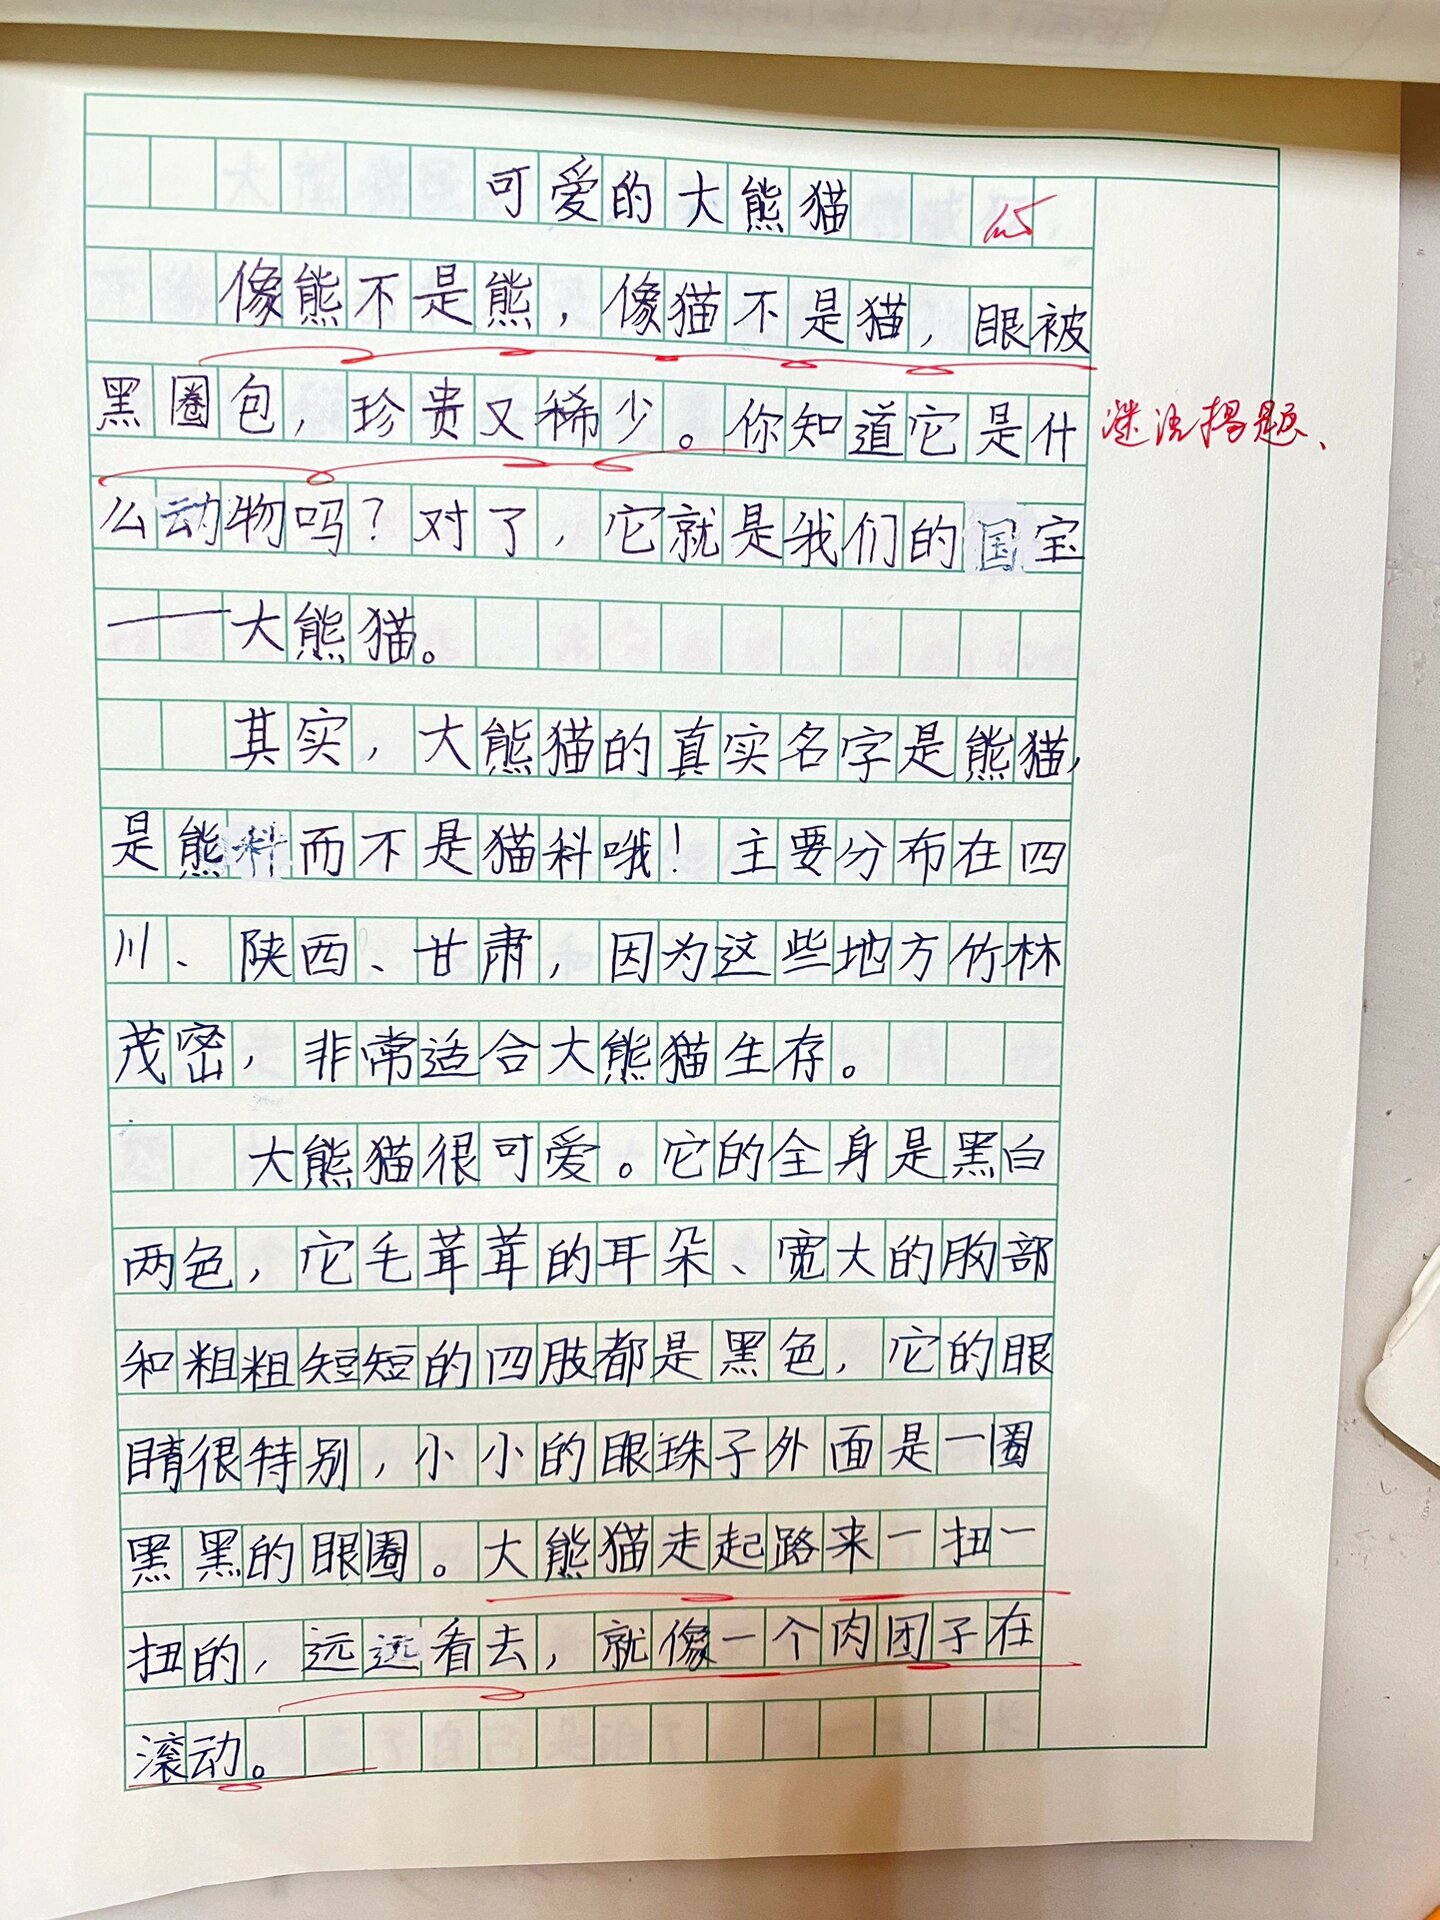 可爱的大熊猫
像熊不是熊，像猫不是猫，眼被
黑圈包，珍贵又稀少。你知道它是什
谜语揭题、
么动物吗？对了，它就是我们的国宝
——大熊猫。
其实，大熊猫的真实名字是熊猫，
是熊科而不是猫科哦！主要分布在四
川、陕西、甘肃，因为这些地方竹林
茂密，非常适合大熊猫生存。
大熊猫很可爱。它的全身是黑白
两色，它毛茸茸的耳朵、宽大的胸部
和粗粗短短的四肢都是黑色，它的眼
睛很特别，小小的眼珠子外面是一圈
黑黑的眼圈。大熊猫走起路来一扭一
扭的，远远看去，就像一个肉团子在
滚动。